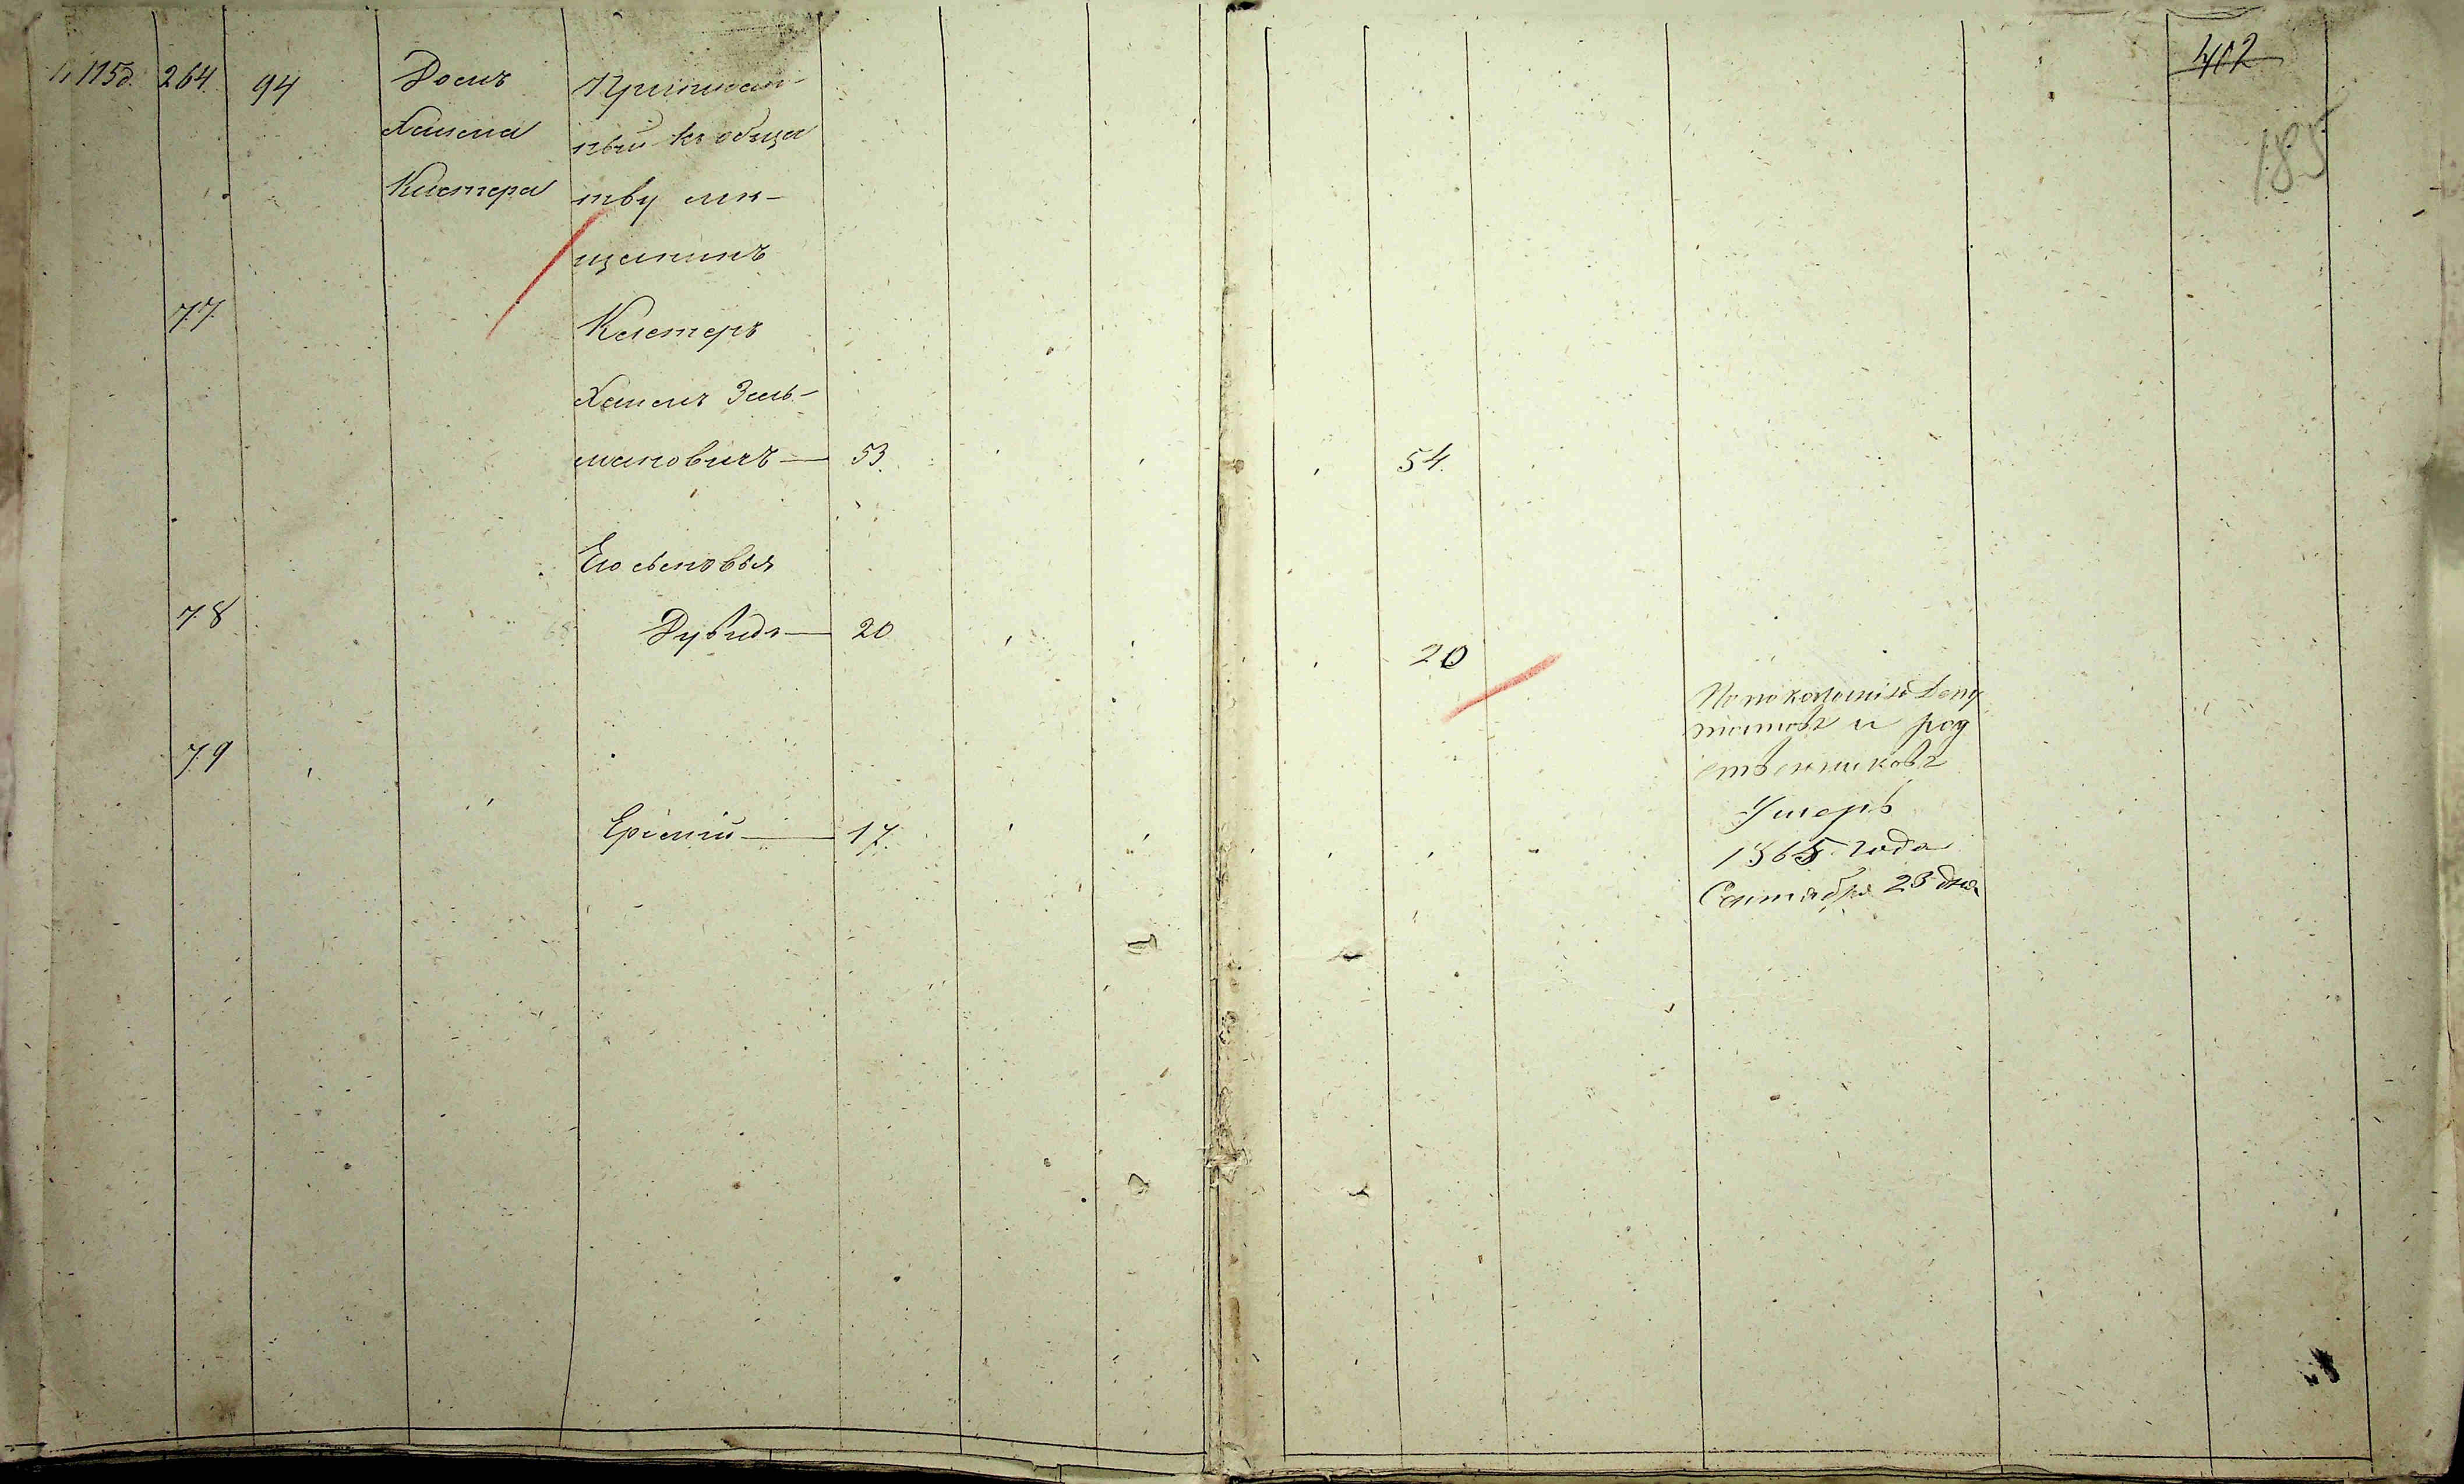 264 94 Домъ
Хаима
Кистера
Приписан-
ный къ обще
тву мѣ-
щанинъ
77
Кистеръ
Хаимъ Зель-
мановичъ — 53. 54.
Его сыновья
78 Дувидъ — 20 20
79
17.
По показанію депу
татовъ и род
ственниковъ
Умеръ
1865 года
Сентября 23 дня
402
185